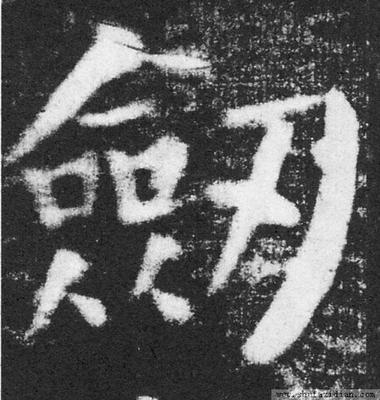 劒
www.shufazidian.com